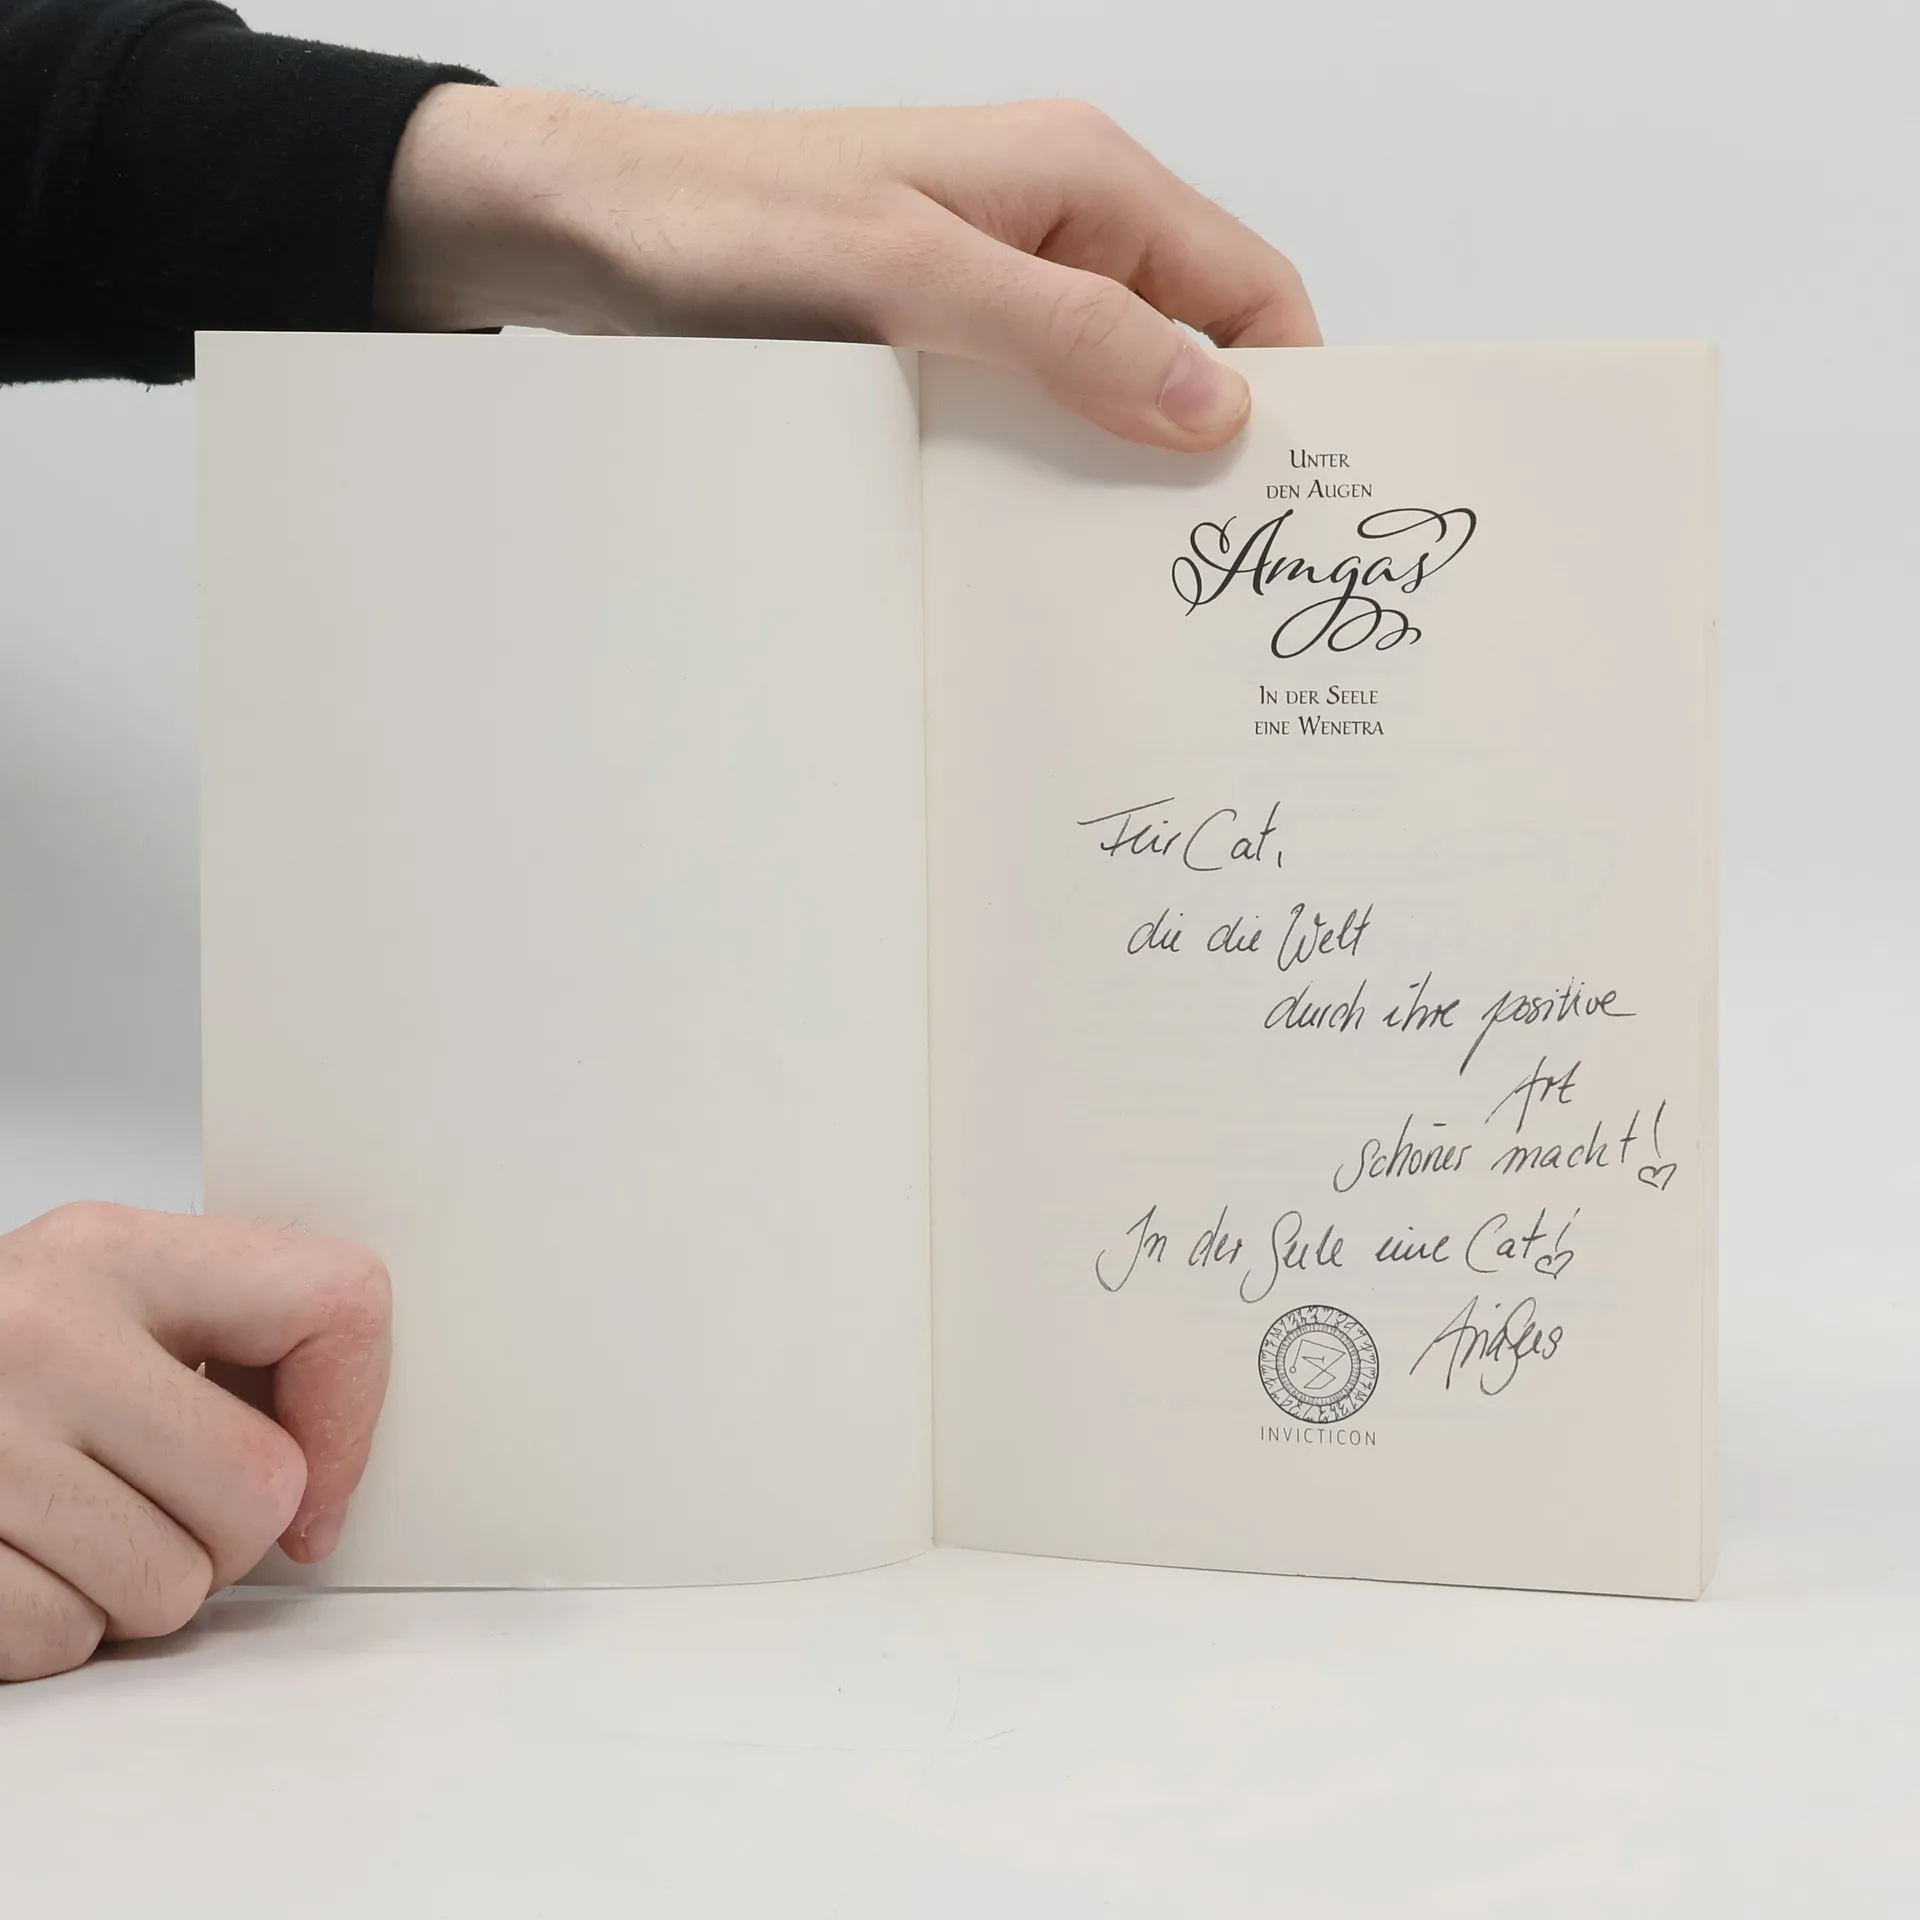 Unter
den Augen
Amgas
In der Seele
eine Wenetra
Für Cat,
die die Welt
durch ihre positive
Art
schöner macht!
In der Seele eine Cat!
INVICTICON